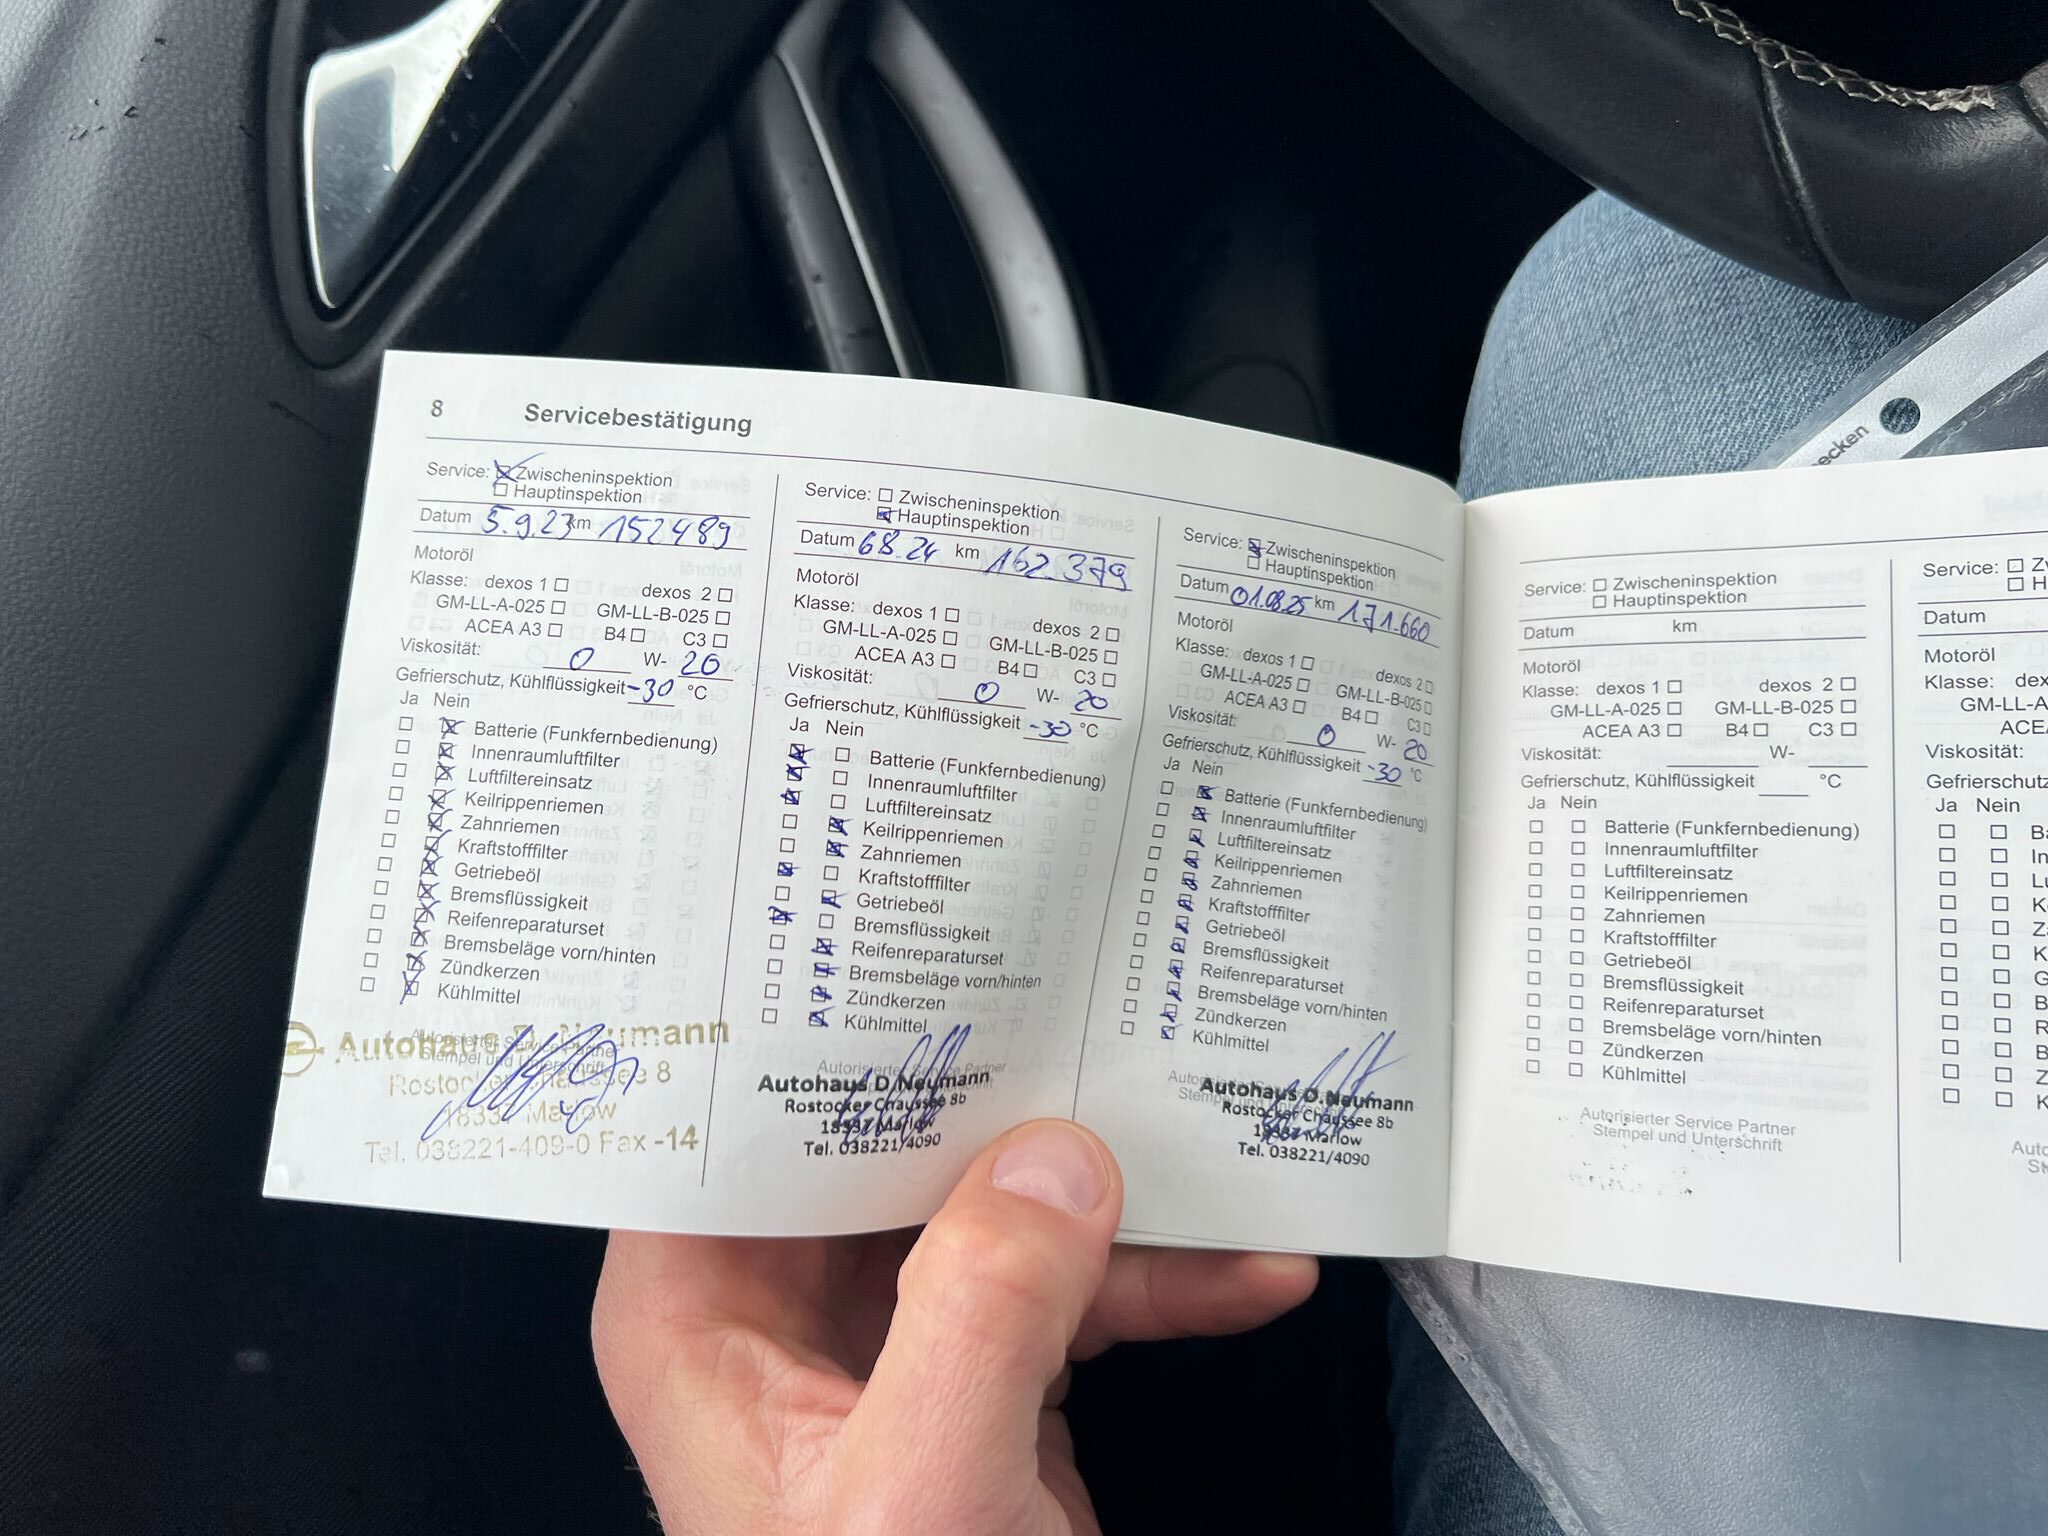 8 Servicebestätigung
Service: Zwischeninspektion
Hauptinspektion
Datum 5.9.23 km 152489
Motoröl
Klasse: dexos 1 dexos 2
GM-LL-A-025 GM-LL-B-025
ACEA A3 B4 C3
Viskosität: 0 W- 20
Gefrierschutz, Kühlflüssigkeit -30 °C
Ja Nein
Batterie (Funkfernbedienung)
Innenraumluftfilter
Luftfiltereinsatz
Keilrippenriemen
Zahnriemen
Kraftstofffilter
Getriebeöl
Bremsflüssigkeit
Reifenreparaturset
Bremsbeläge vorn/hinten
Zündkerzen
Kühlmittel
Autorisierter Service Partner
Stempel und Unterschrift
Autohaus D. Neumann
Rostocker Chaussee 8
18337 Marlow
Tel. 038221-409-0 Fax -14
Service: Zwischeninspektion
Hauptinspektion
Datum 6.8.24 km 162.379
Motoröl
Klasse: dexos 1 dexos 2
GM-LL-A-025 GM-LL-B-025
ACEA A3 B4 C3
Viskosität: 0 W- 20
Gefrierschutz, Kühlflüssigkeit -30 °C
Ja Nein
Batterie (Funkfernbedienung)
Innenraumluftfilter
Luftfiltereinsatz
Keilrippenriemen
Zahnriemen
Kraftstofffilter
Getriebeöl
Bremsflüssigkeit
Reifenreparaturset
Bremsbeläge vorn/hinten
Zündkerzen
Kühlmittel
Autorisierter Service Partner
Autohaus D. Neumann
Rostocker Chaussee 8b
18337 Marlow
Tel. 038221/4090
Service: Zwischeninspektion
Hauptinspektion
Datum 01.08.25 km 171.660
Motoröl
Klasse: dexos 1 dexos 2
GM-LL-A-025 GM-LL-B-025
ACEA A3 B4 C3
Viskosität: 0 W- 20
Gefrierschutz, Kühlflüssigkeit -30 °C
Ja Nein
Batterie (Funkfernbedienung)
Innenraumluftfilter
Luftfiltereinsatz
Keilrippenriemen
Zahnriemen
Kraftstofffilter
Getriebeöl
Bremsflüssigkeit
Reifenreparaturset
Bremsbeläge vorn/hinten
Zündkerzen
Kühlmittel
Autohaus D. Neumann
Rostocker Chaussee 8b
18337 Marlow
Tel. 038221/4090
Service: Zwischeninspektion
Hauptinspektion
Datum km
Motoröl
Klasse: dexos 1 dexos 2
GM-LL-A-025 GM-LL-B-025
ACEA A3 B4 C3
Viskosität: W-
Gefrierschutz, Kühlflüssigkeit °C
Ja Nein
Batterie (Funkfernbedienung)
Innenraumluftfilter
Luftfiltereinsatz
Keilrippenriemen
Zahnriemen
Kraftstofffilter
Getriebeöl
Bremsflüssigkeit
Reifenreparaturset
Bremsbeläge vorn/hinten
Zündkerzen
Kühlmittel
Autorisierter Service Partner
Stempel und Unterschrift
Service:
Datum
Motoröl
Klasse:
GM-LL-
Viskosität:
Gefrierschutz
Ja Nein